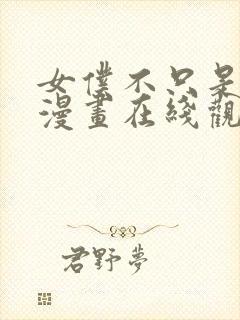 女僕不只是
漫畫在綫觀
君野夢